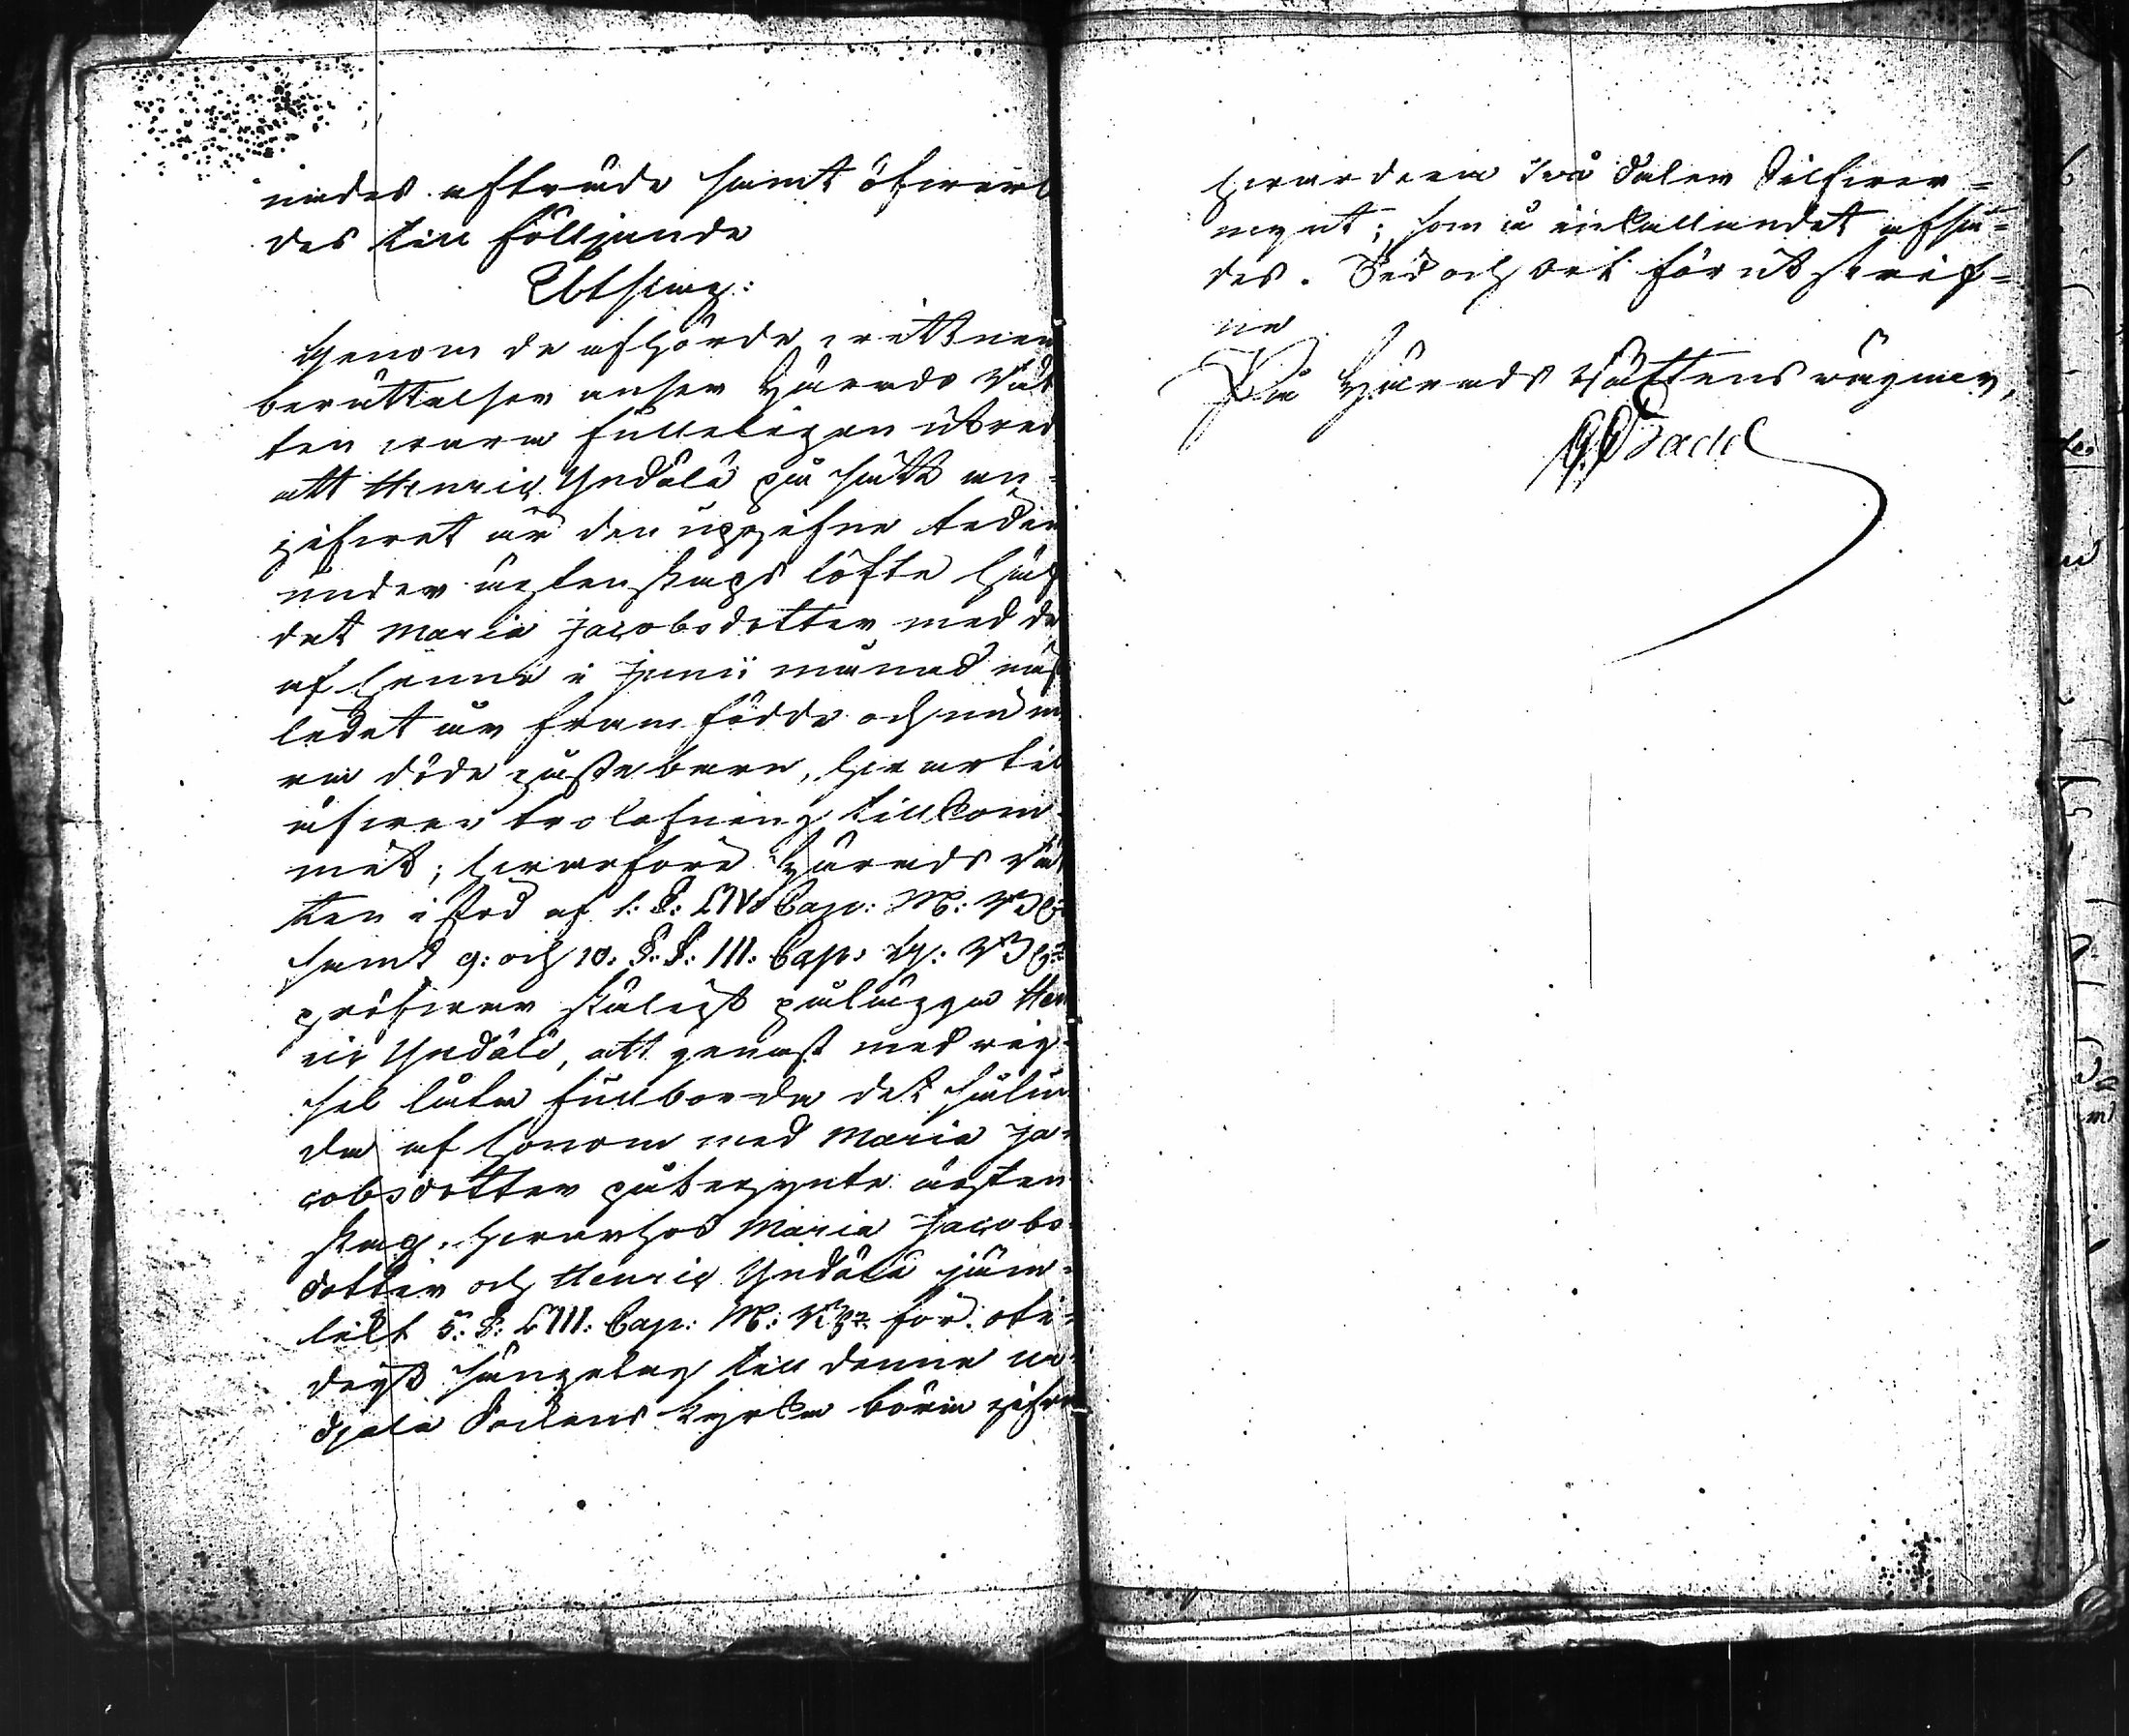 nades afträde samt öfwerl
des till fölljande
Utslag:
Genom de afhörde wittnen
berättelser anser Härads Rät
ten wara fulleligen utred
att Henric Yndälä på sätt an-
gifwet är den uppgifne tiden
under ägtenskaps löfte häf
dat Maria Jacobsdotter med de
af henne i Junii månad näst
ledet år fram födde och nu m
ra döde gåssebarn, hwartil
äfwen trolofning tillkom-
mit; hwarföre Härads Rät
ten i stöd af 1: §: LIV Cap: M: B:
samt 9: och 10: §: §: III: Cap: G: B:
pröfwar skäligt påläggа Hen
ric Yndälä, att genast med wig-
sel låta fullborda det sålun
da af honom med Maria Ja-
cobsdotter påbegynte ägten
skap, hwarhos Maria Jacobs-
dotter och Henric Yndälä jäm-
likt 5: §: LIII: Cap: M: B: för oti-
digt sängelag till denne
Sockens Kyrka böra gifwa
hwardera två daler Silfwer-
mynt; som å inkallandet afsa-
des. Tid och Ort förutskrif-
ne
På Härads Rättens wägnar,